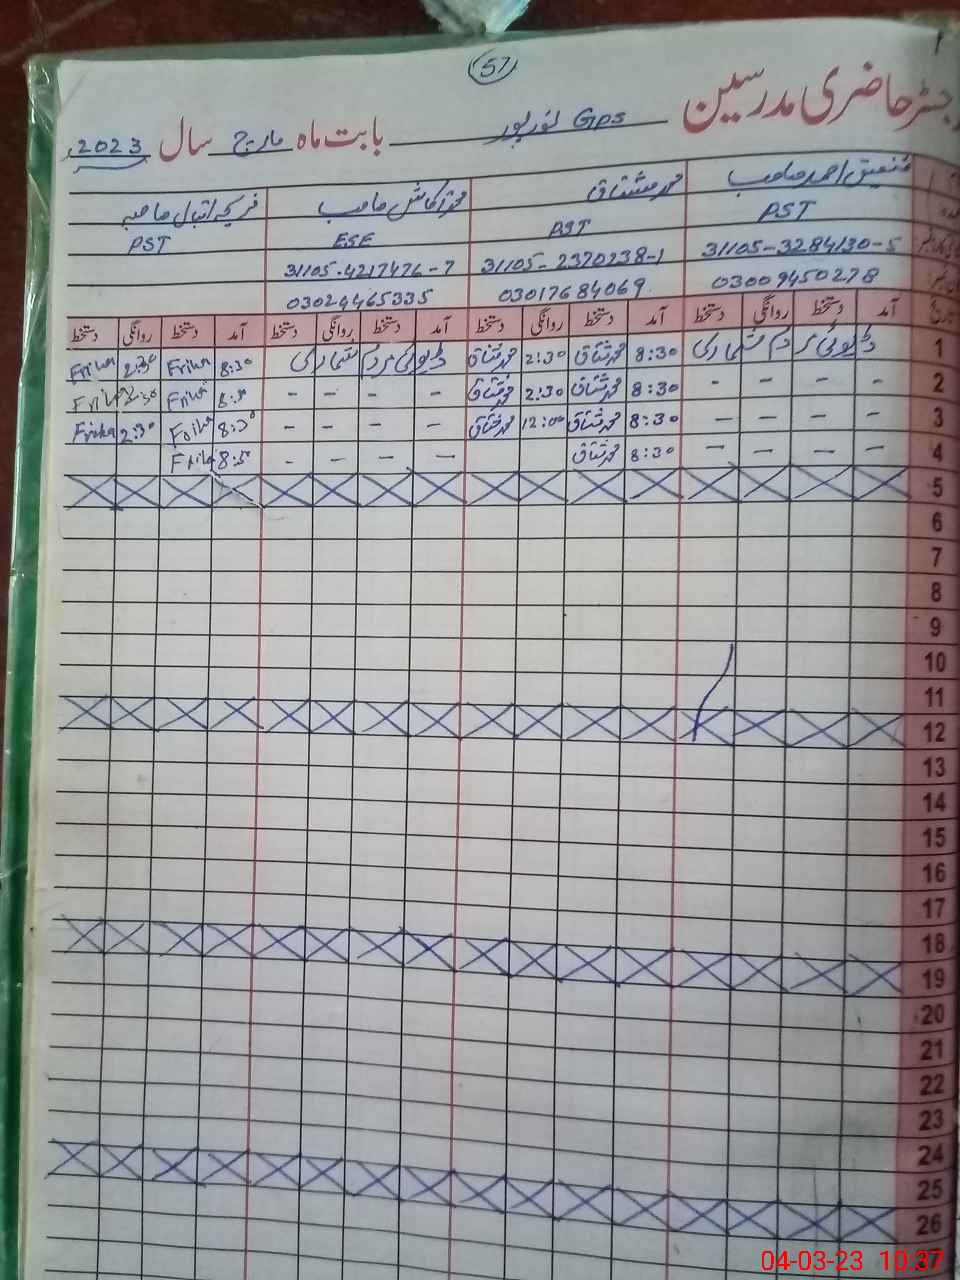 57
رجسٹر حاضری مدرسین Gps نورپور بابت ماہ مارچ سال 2023
شفیق احمد صاحب محمد مشتاق محمد اکاش صاحب فریحہ اقبال صاحبہ
PST PST ESE PST
31105-3284130-5 31105-2370238-1 31105-4217476-7
03009450278 03017684069 03024465335
تاریخ آمد دستخط روانگی دستخط آمد دستخط روانگی دستخط آمد دستخط روانگی دستخط آمد دستخط روانگی دستخط
1 ڈیوٹی مردم شماری 8:30 محمد مشتاق 2:30 محمد مشتاق ڈیوٹی مردم شماری 8:30 Friha 2:30 Friha
2 - - - - 8:30 محمد مشتاق 2:30 محمد مشتاق - - - - 8:30 Friha 2:30 Friha
3 - - - - 8:30 محمد مشتاق 12:00 محمد مشتاق - - - - 8:30 Friha 2:30 Friha
4 - - - - 8:30 محمد مشتاق - - - - 8:30 Friha
5
6
7
8
9
10
11
12
13
14
15
16
17
18
19
20
21
22
23
24
25
26
04-03-23 10:37